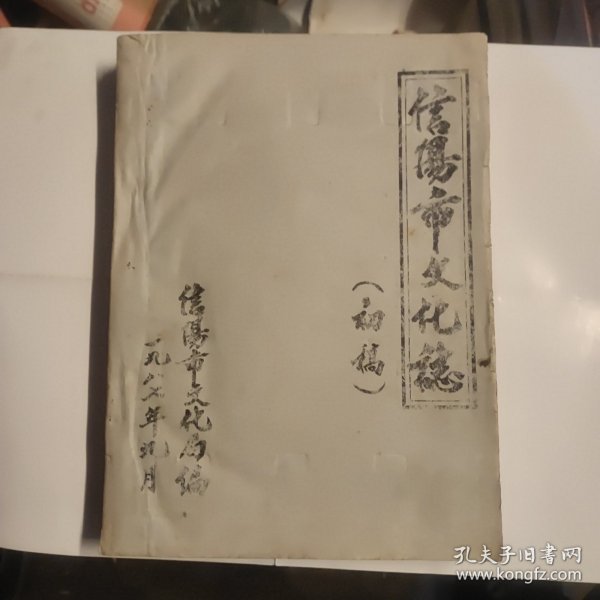 信陽市文化誌
（初稿）
信陽市文化局编
一九八七年九月
孔夫子旧書网
www.kongfz.com